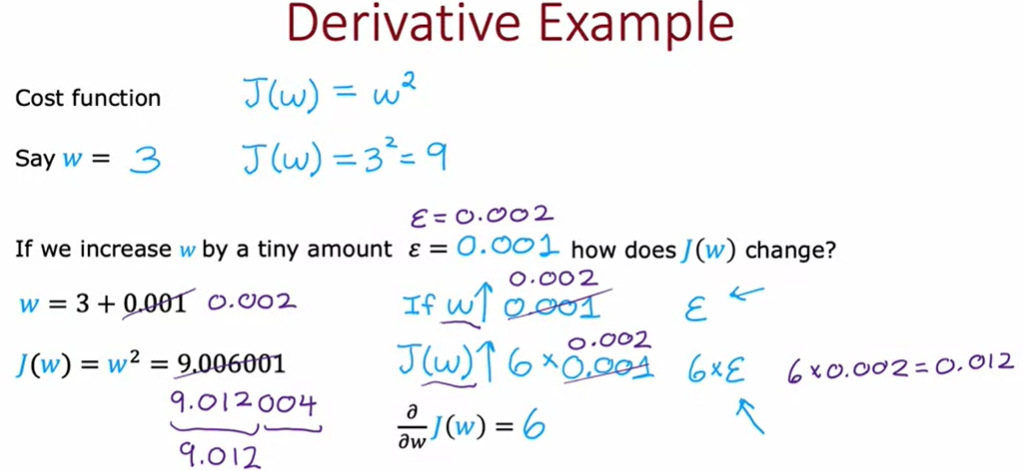 Derivative Example
Cost function J(w) = w²
Say w = 3 J(w) = 3² = 9
ε = 0.002
If we increase w by a tiny amount ε = 0.001 how does J(w) change?
0.002
w = 3 + 0.001 0.002 If w↑ 0.001 ε ←
0.002
J(w) = w² = 9.006001 J(w)↑ 6 × 0.001 6×ε 6×0.002 = 0.012
9.012004
∂/∂w J(w) = 6
9.012